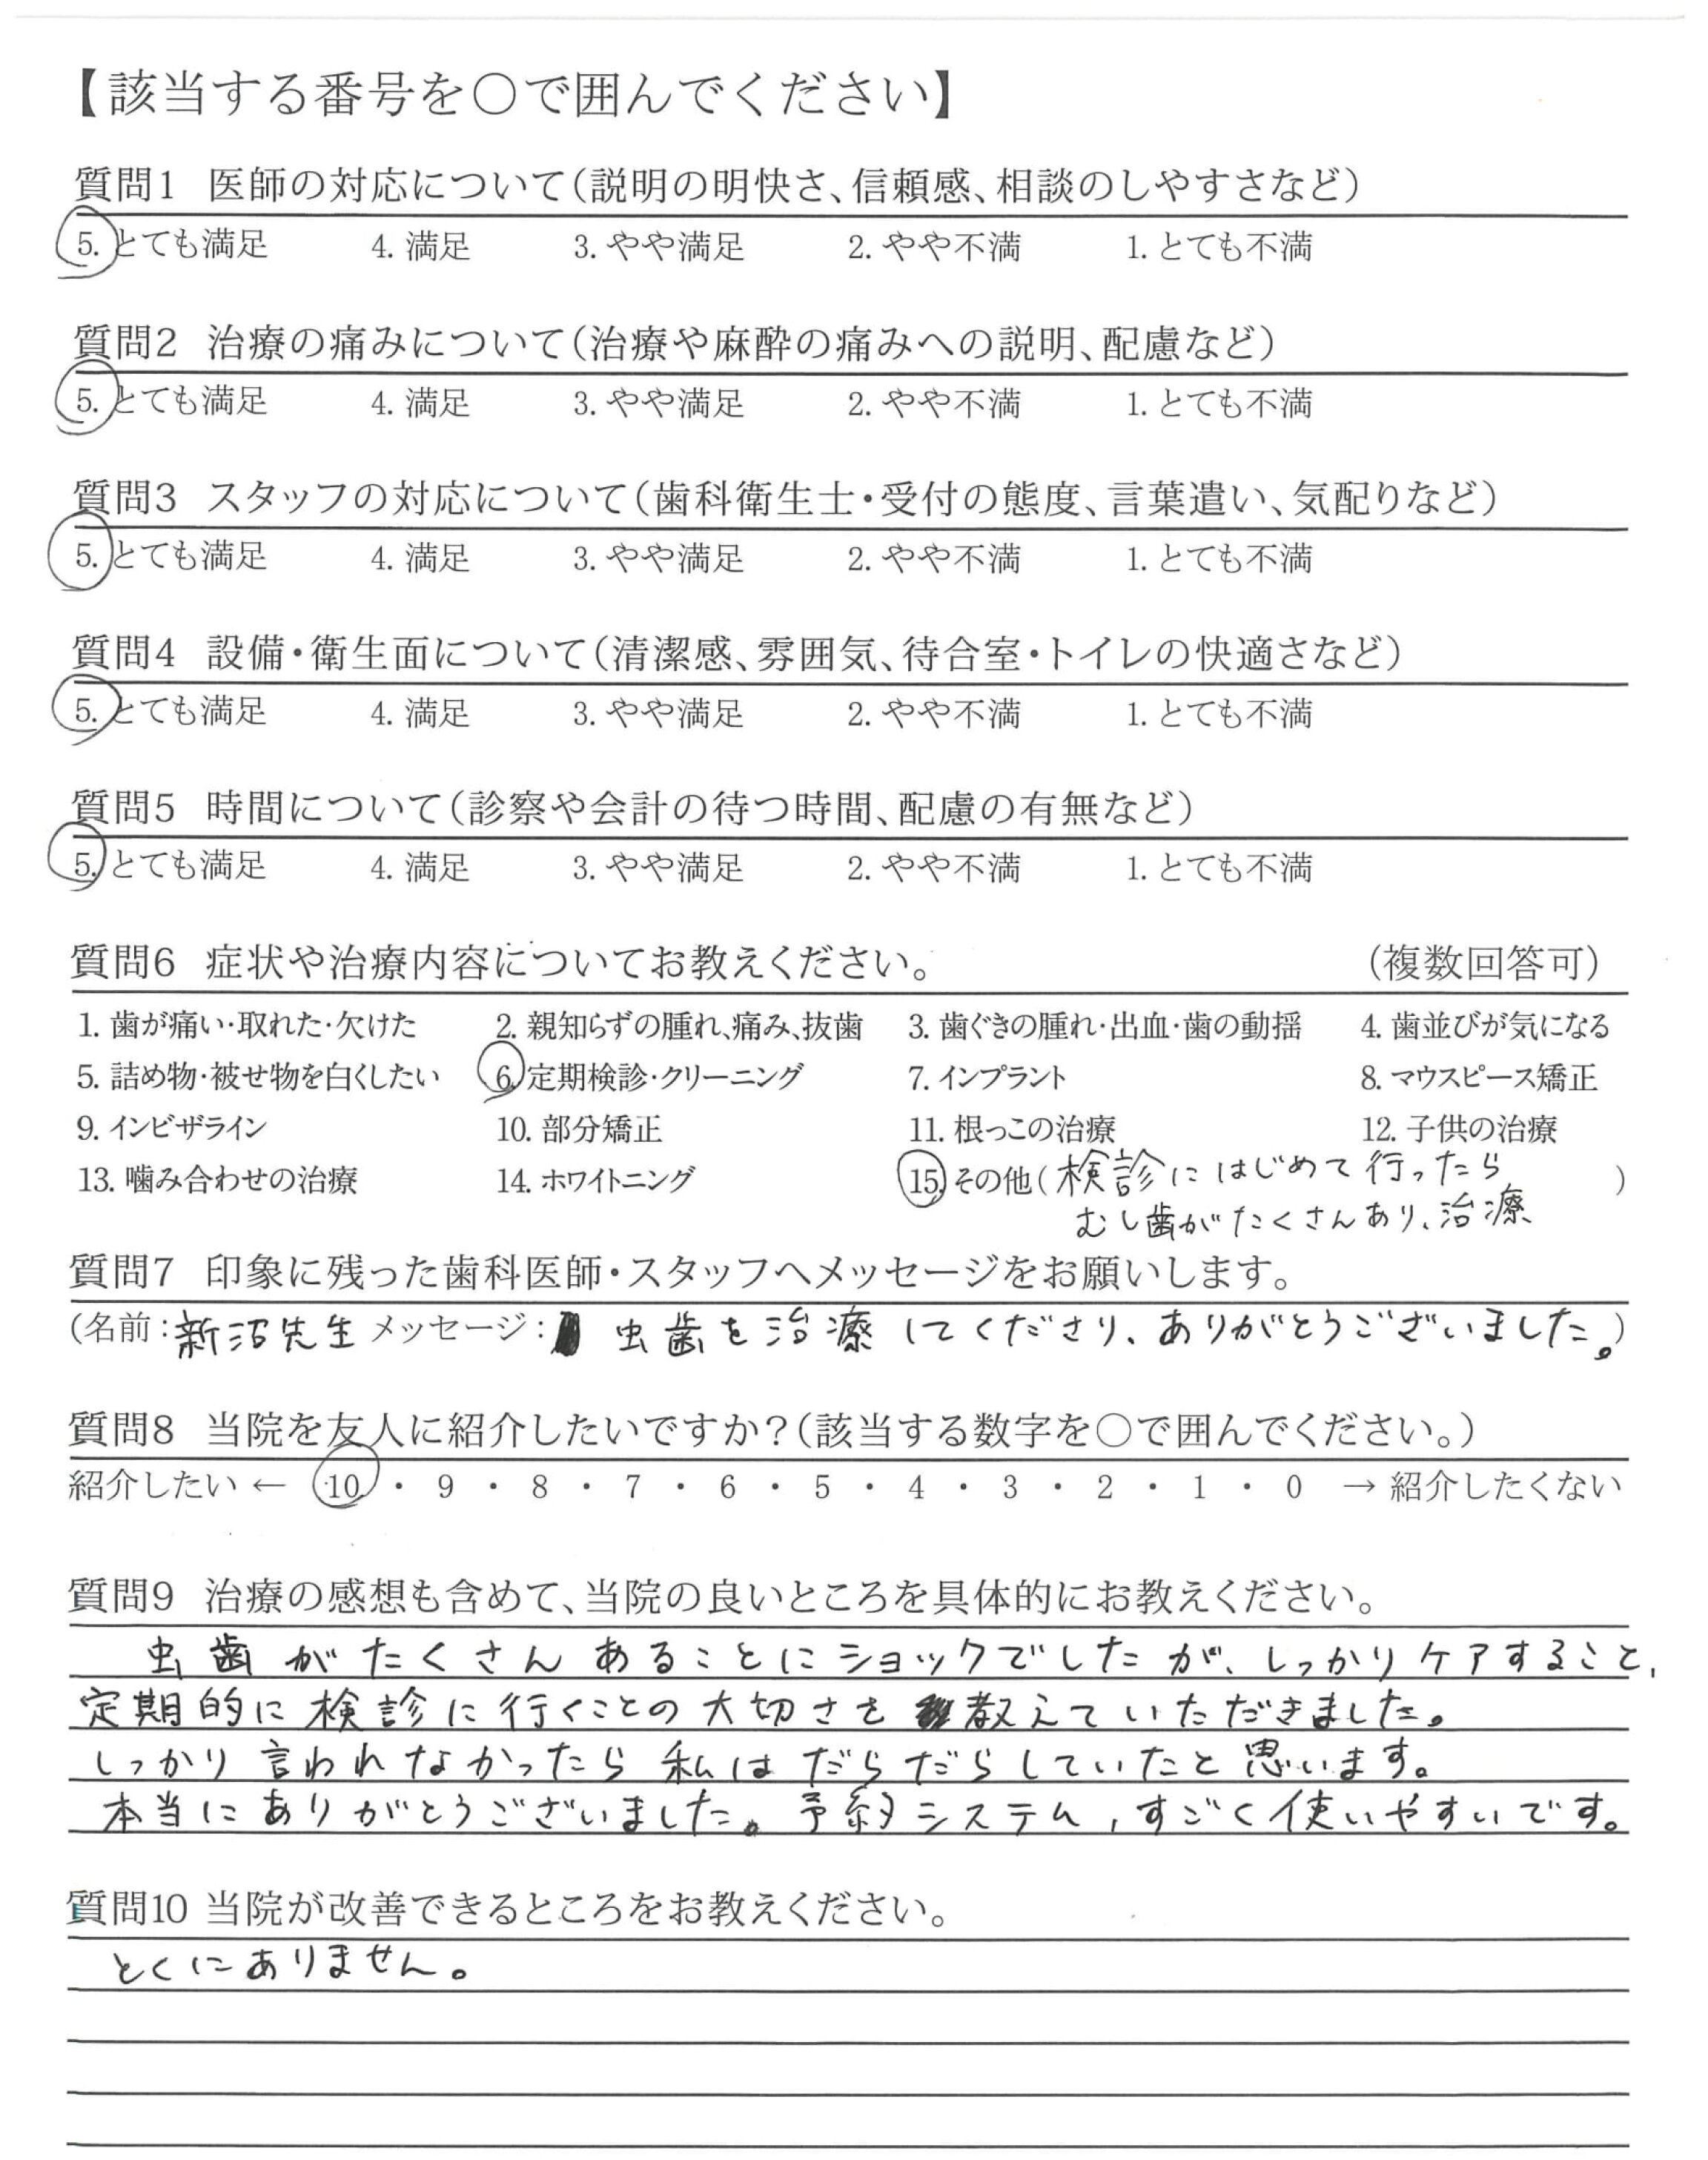 【該当する番号を○で囲んでください】
質問1 医師の対応について（説明の明快さ、信頼感、相談のしやすさなど）
5. とても満足 4. 満足 3. やや満足 2. やや不満 1. とても不満
質問2 治療の痛みについて（治療や麻酔の痛みへの説明、配慮など）
5. とても満足 4. 満足 3. やや満足 2. やや不満 1. とても不満
質問3 スタッフの対応について（歯科衛生士・受付の態度、言葉遣い、気配りなど）
5. とても満足 4. 満足 3. やや満足 2. やや不満 1. とても不満
質問4 設備・衛生面について（清潔感、雰囲気、待合室・トイレの快適さなど）
5. とても満足 4. 満足 3. やや満足 2. やや不満 1. とても不満
質問5 時間について（診察や会計の待つ時間、配慮の有無など）
5. とても満足 4. 満足 3. やや満足 2. やや不満 1. とても不満
質問6 症状や治療内容についてお教えください。 （複数回答可）
1. 歯が痛い・取れた・欠けた 2. 親知らずの腫れ、痛み、抜歯 3. 歯ぐきの腫れ・出血・歯の動揺 4. 歯並びが気になる
5. 詰め物・被せ物を白くしたい 6. 定期検診・クリーニング 7. インプラント 8. マウスピース矯正
9. インビザライン 10. 部分矯正 11. 根っこの治療 12. 子供の治療
13. 噛み合わせの治療 14. ホワイトニング 15. その他（検診にはじめて行ったら ）
むし歯がたくさんあり、治療
質問7 印象に残った歯科医師・スタッフへメッセージをお願いします。
（名前：新沼先生 メッセージ： 虫歯を治療してくださり、ありがとうございました。）
質問8 当院を友人に紹介したいですか？（該当する数字を○で囲んでください。）
紹介したい ← 10 ・ 9 ・ 8 ・ 7 ・ 6 ・ 5 ・ 4 ・ 3 ・ 2 ・ 1 ・ 0 → 紹介したくない
質問9 治療の感想も含めて、当院の良いところを具体的にお教えください。
虫歯がたくさんあることにショックでしたが、しっかりケアすること、
定期的に検診に行くことの大切さを教えていただきました。
しっかり言われなかったら私はだらだらしていたと思います。
本当にありがとうございました。予約システム、すごく使いやすいです。
質問10 当院が改善できるところをお教えください。
とくにありません。